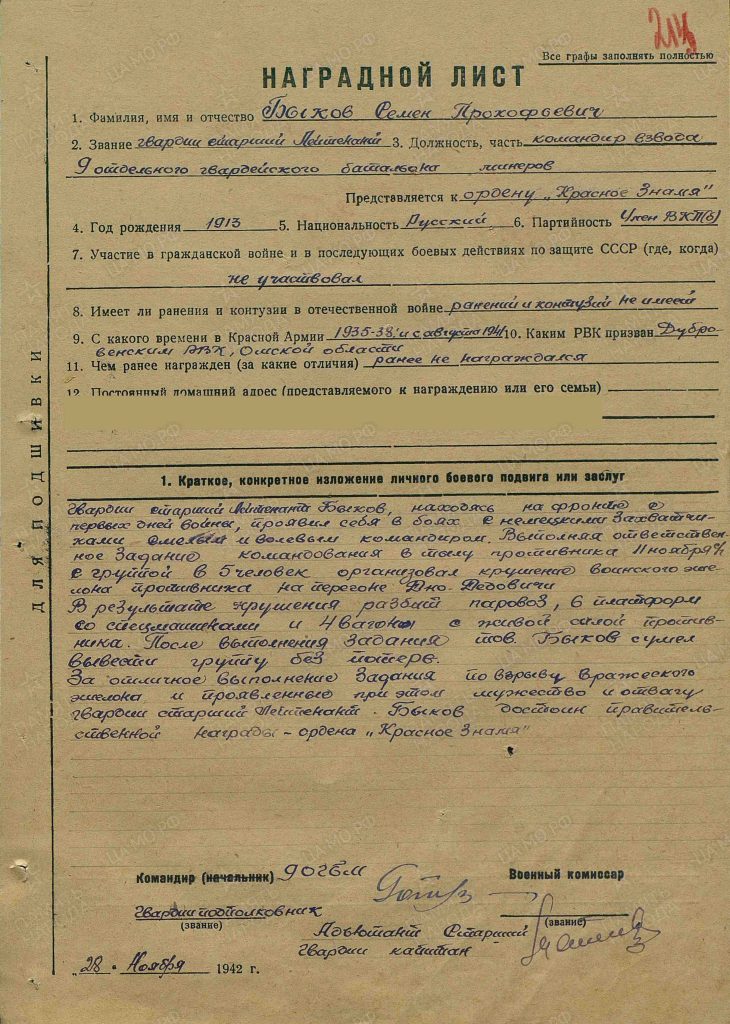 214
Все графы заполнять полностью
НАГРАДНОЙ ЛИСТ
1. Фамилия, имя и отчество Быков Семен Прокофьевич
2. Звание гвардии старший Лейтенант 3. Должность, часть командир взвода
9 отдельного гвардейского батальона минеров
Представляется к ордену „Красное Знамя"
4. Год рождения 1913 5. Национальность Русский 6. Партийность Член ВКП(б)
7. Участие в гражданской войне и в последующих боевых действиях по защите СССР (где, когда)
не участвовал
8. Имеет ли ранения и контузии в отечественной войне ранений и контузий не имеет
9. С какого времени в Красной Армии 1935-38, и с августа 1941 10. Каким РВК призван Дубро-
венским РВК, Омской области
11. Чем ранее награжден (за какие отличия) ранее не награждался
12. Постоянный домашний адрес (представляемого к награждению или его семьи)
1. Краткое, конкретное изложение личного боевого подвига или заслуг
Гвардии старший Лейтенант Быков, находясь на фронте с
первых дней войны, проявил себя в боях с немецкими Захватчи-
ками смелым и волевым командиром. Выполняя ответствен-
ное Задание командования в тылу противника 11 ноября
с группой в 5 человек организовал крушение воинского эше-
лона противника на перегоне Дно-Дедовичи
В результате крушения разбит паровоз, 6 платформ
со спецмашинами и 4 вагона с живой силой против-
ника. После выполнения Задания тов. Быков сумел
вывести группу без потерь.
За отличное выполнение Задания по взрыву вражеского
эшелона и проявленные при этом мужество и отвагу
гвардии старший Лейтенант. Быков достоин правитель-
ственной награды - ордена „Красное Знамя"
Командир (начальник) 9 ОГБМ Военный комиссар
гвардии подполковник
(звание) (звание)
Адъютант Старший
гвардии капитан
„28" Ноября 1942 г.
ДЛЯ ПОДШИВКИ
ЦАМО.РФ